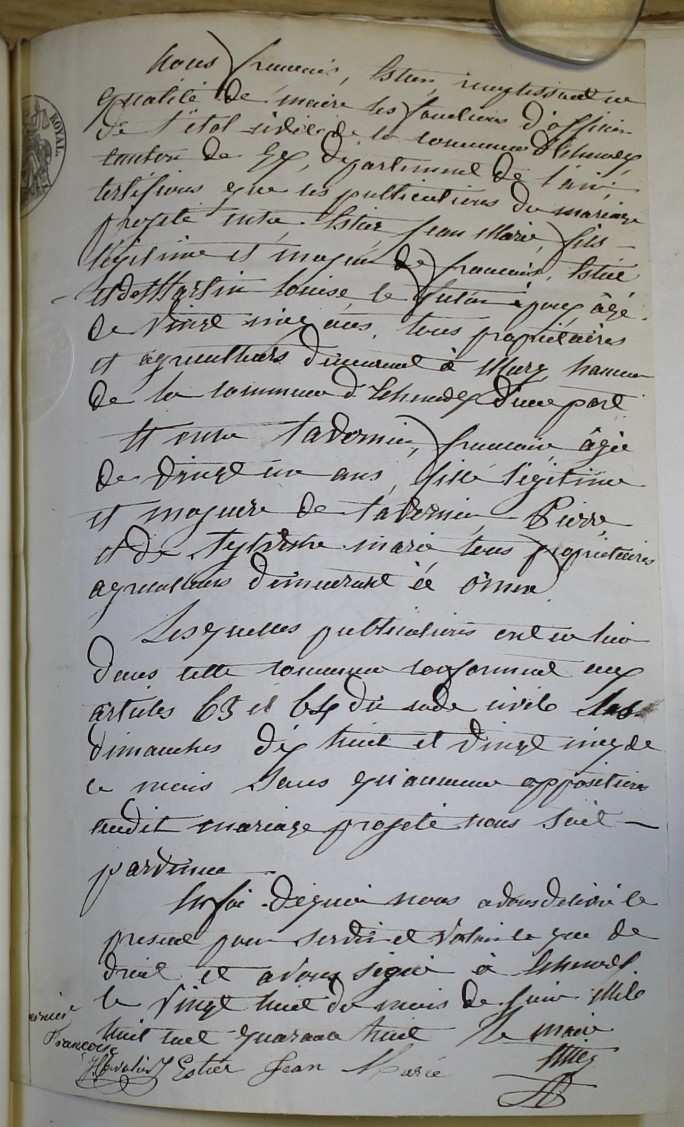 ROYAL
Nous françois, Estier, remplissant en
qualité de maire les fonctions d'officier
de l'état civil de la commune d'Echenevex
canton de Gex, département de l'ain,
certifions que les publications du mariage
projeté entre Estier Jean Marie, fils
légitime et majeur de françois, Estier
et de Martin Louise, le futur époux âgé
de vingt cinq ans, tous propriétaires
et agriculteurs demeurant à Mury, hameau
de la commune d'Echenevex d'une part
Et entre Tavernier, françoise, âgée
de vingt un ans, fille légitime
et majeure de tavernier Pierre
et de marie tous propriétaires
agriculteurs demeurant à Ornex
Lesquelles publications ont eu lieu
dans cette commune conformément aux
articles 63 et 64 du code civile les
dimanches dix huit et vingt cinq de
ce mois sans qu'aucune opposition
audit mariage projeté nous soit
parvenue
En foi de quoi nous avons delivré le
present pour servir et valoir ce que de
droit et avons signé à Echenevex
le vingt huit du mois de juin mile
huit cent quarante huit le maire
Françoise
Estier Jean Marie